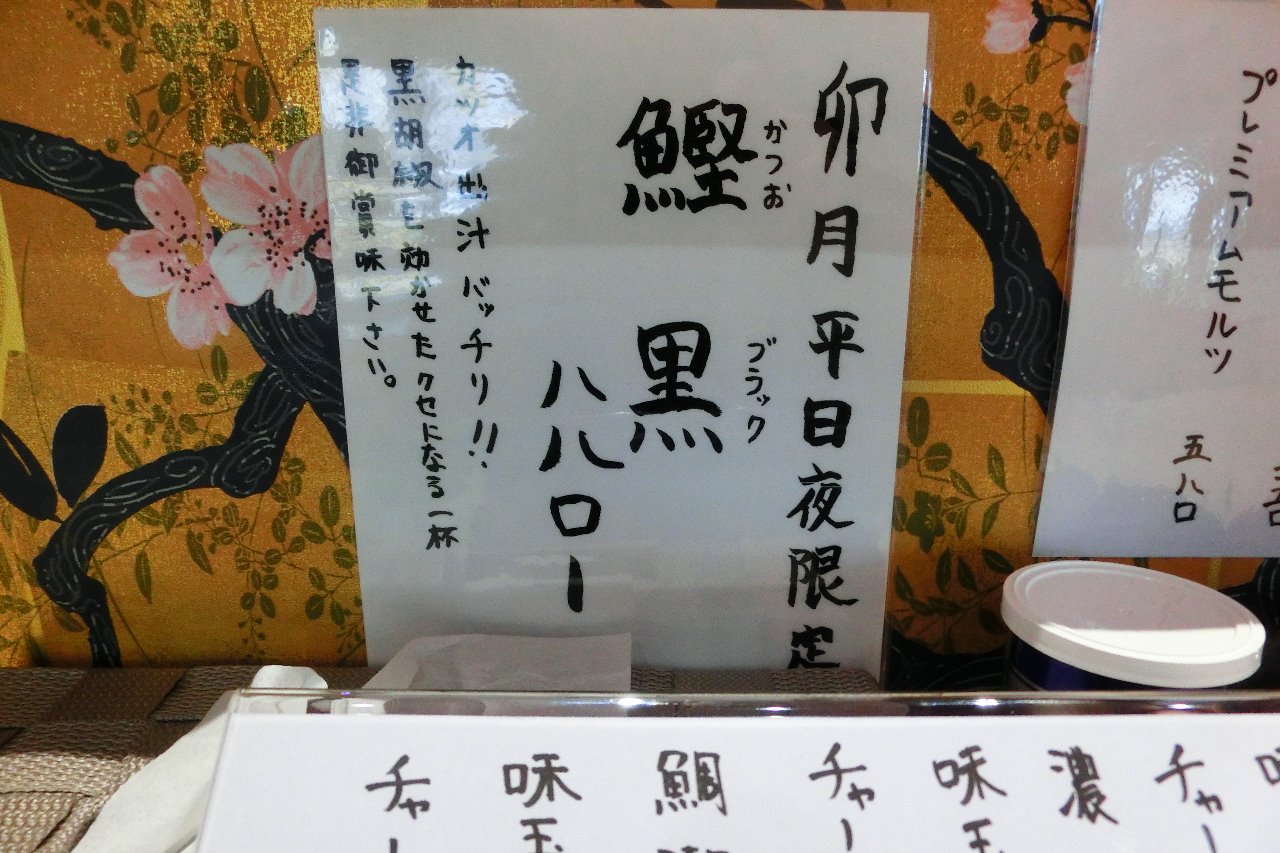 プレミアムモルツ
五八〇
卯月平日夜限定
かつお ブラック
鰹 黒
八八〇ー
カツオ出汁バッチリ!!
黒胡椒を効かせたクセになる一杯
是非御賞味下さい。
チャ
濃
味玉
チャー
鯛
味玉
チャー